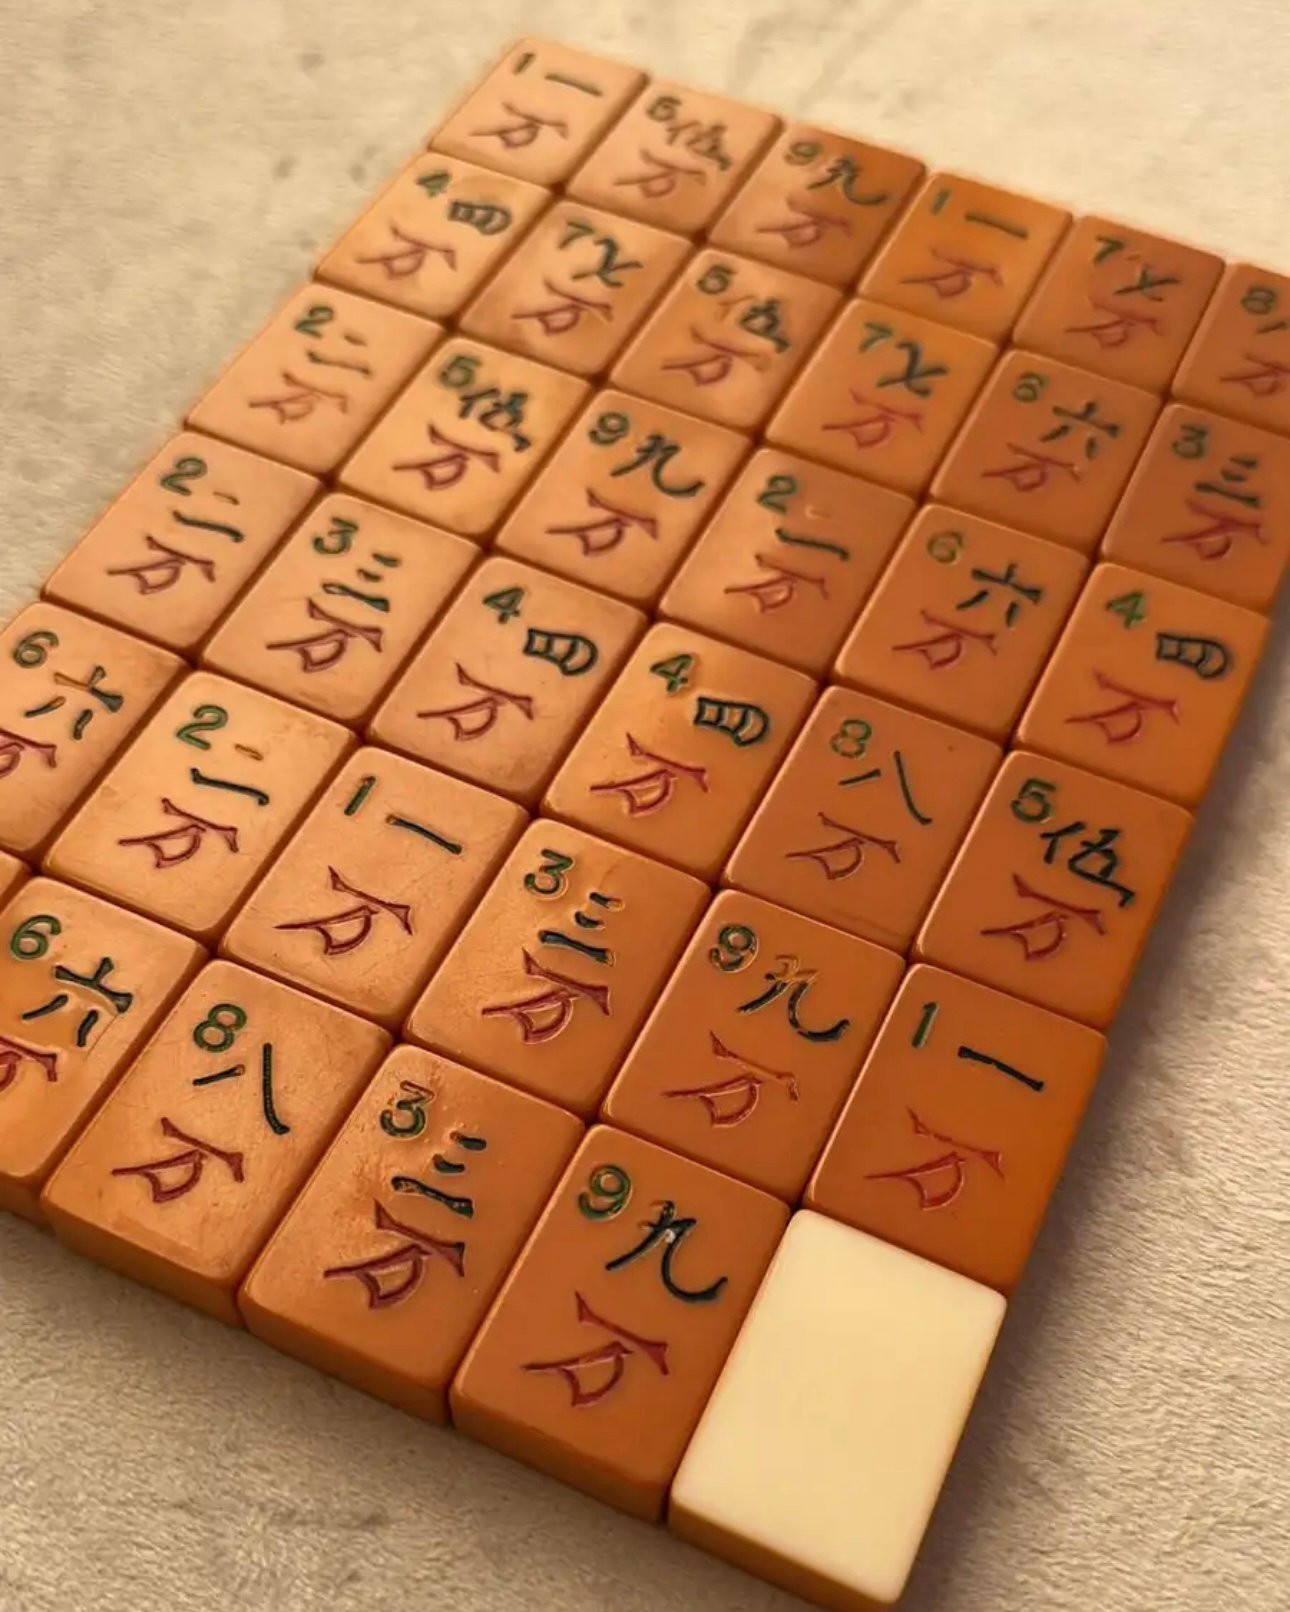 1一 5伍 9九 1一 7七 8
万 万 万 万 万 万
4四 7七 5伍 7七 6六 3三
万 万 万 万 万 万
2二 5伍 9九 2二 6六 4四
万 万 万 万 万 万
2二 3三 4四 4四 8八 5伍
万 万 万 万 万 万
6六 2二 1一 3三 9九 1一
万 万 万 万 万 万
6六 8八 3三 9九
万 万 万 万